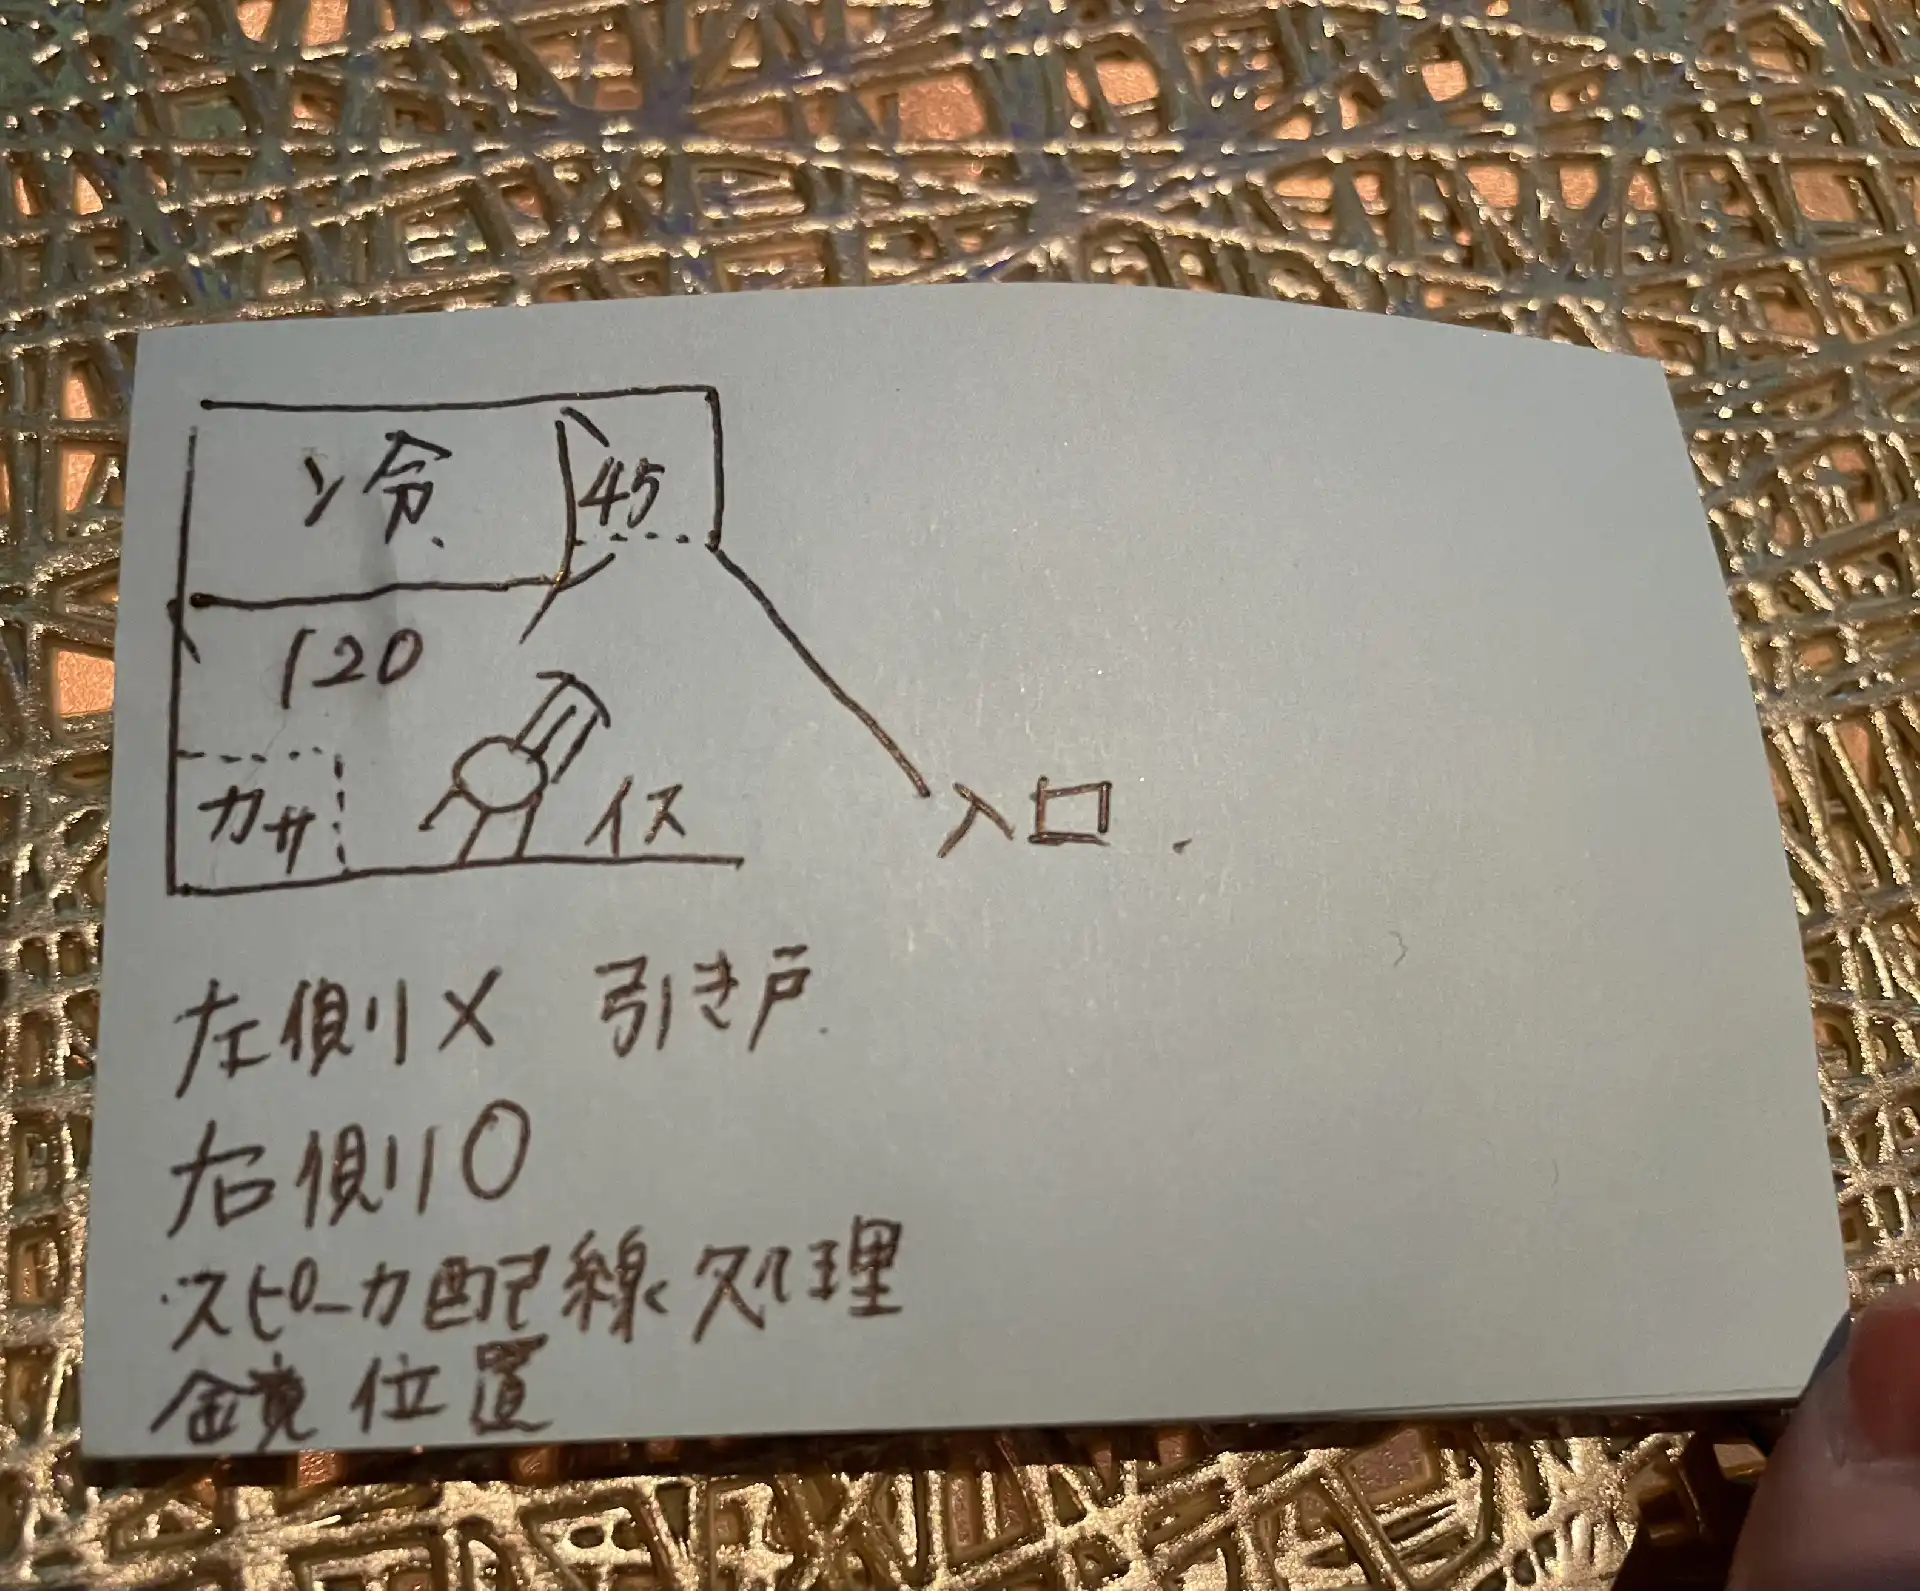 冷
45
120
カサ
イス
入口.
左側× 引き戸.
右側○
・スピーカ配線処理
鏡位置